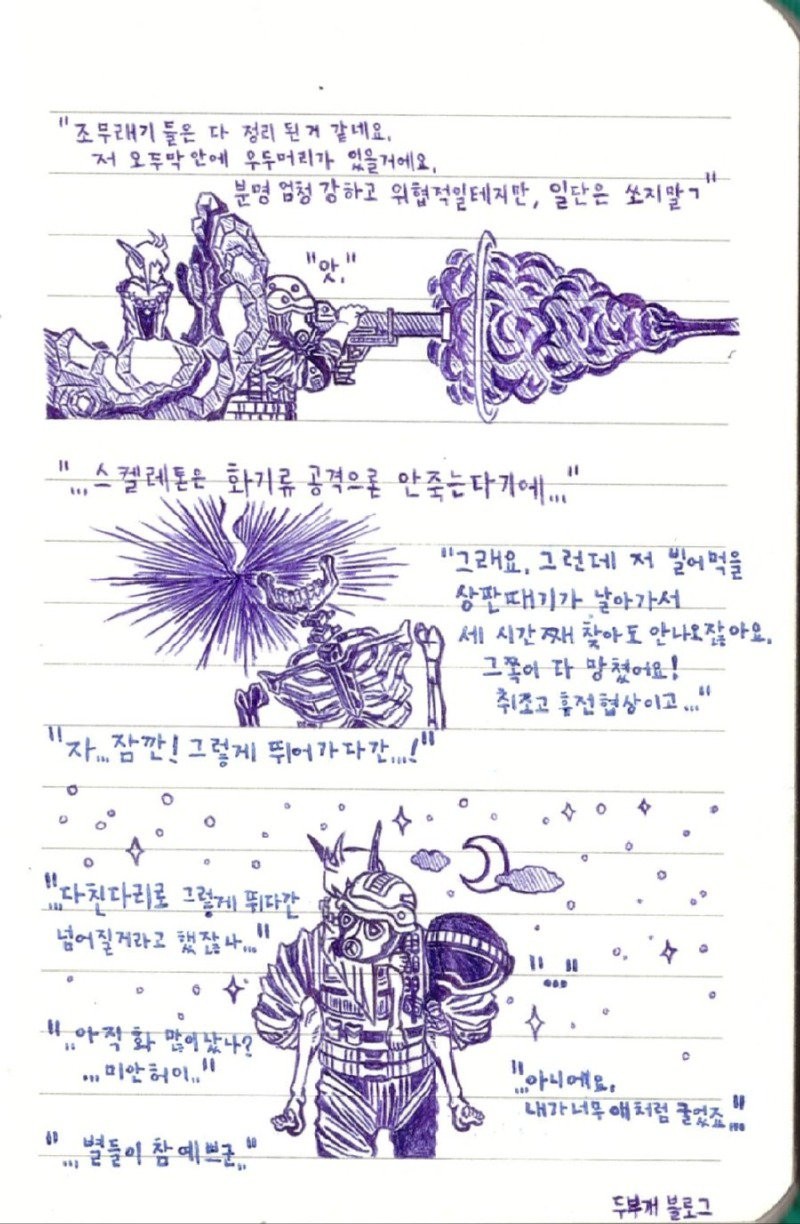 "조무래기들은 다 정리 된거 같네요.
저 오두막안에 우두머리가 있을거에요.
분명 엄청 강하고 위협적일테지만, 일단은 쏘지말ㄱ"
"앗."
"...스켈레톤은 화기류 공격으론 안죽는다기에..."
"그래요, 그런데 저 빌어먹을
상판때기가 날아가서
세 시간째 찾아도 안나오잖아요.
그쪽이 다 망쳤어요!
취조고 휴전협상이고..."
"자...잠깐! 그렇게 뛰어가다간...!"
"...다친다리로 그렇게 뛰다간
넘어질거라고 했잖나..."
"..."
"..아직 화 많이 났나?
...미안허이.."
"...아니에요.
내가 너무 애처럼 굴었죠..."
"... 별들이 참 예쁘군.."
두부개 블로그